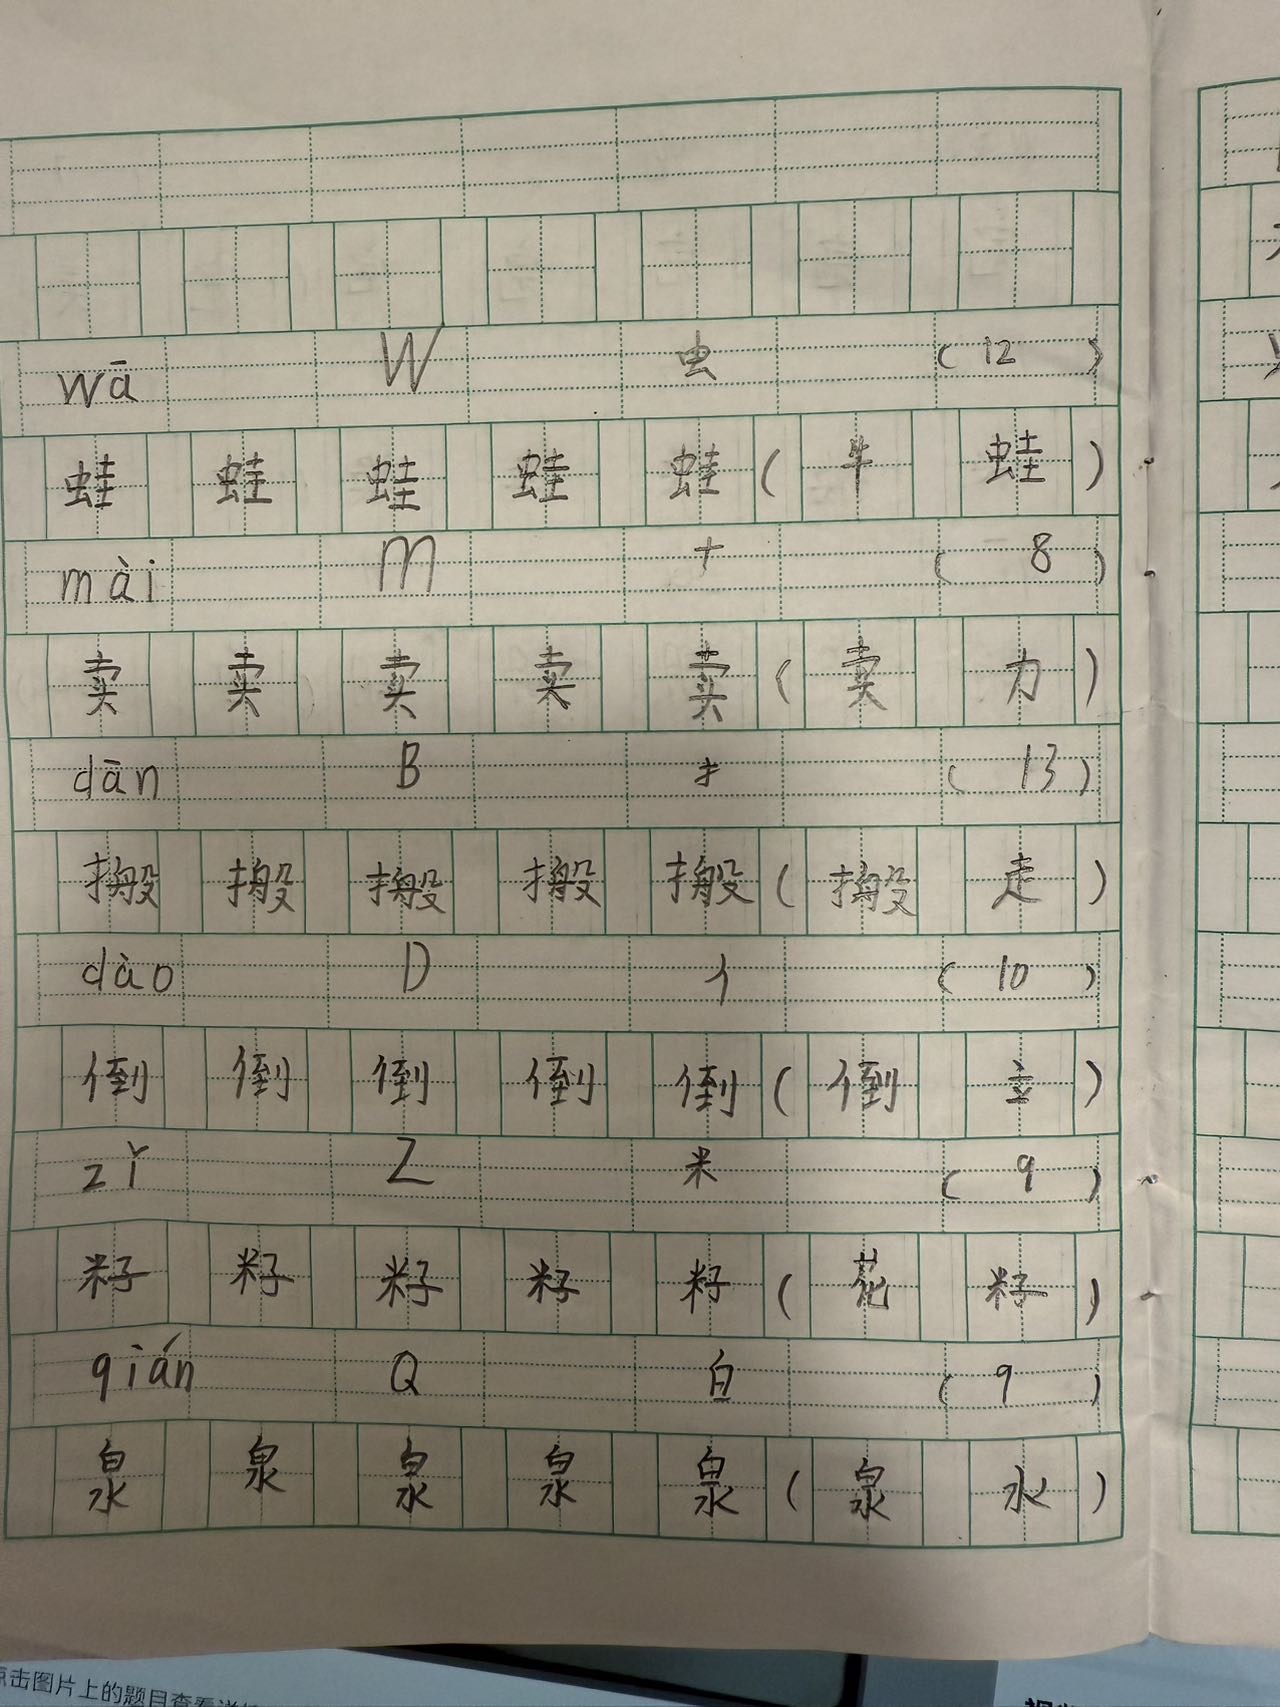 wā W 虫 ( 12 )
蛙 蛙 蛙 蛙 蛙 ( 牛 蛙 )
mài M 十 ( 8 )
卖 卖 卖 卖 卖 ( 卖 力 )
dān B 扌 ( 13 )
搬 搬 搬 搬 搬 ( 搬 走 )
dào D 亻 ( 10 )
倒 倒 倒 倒 倒 ( 倒 立 )
zǐ Z 米 ( 9 )
籽 籽 籽 籽 籽 ( 花 籽 )
qián Q 白 ( 9 )
泉 泉 泉 泉 泉 ( 泉 水 )
点击图片上的题目查看